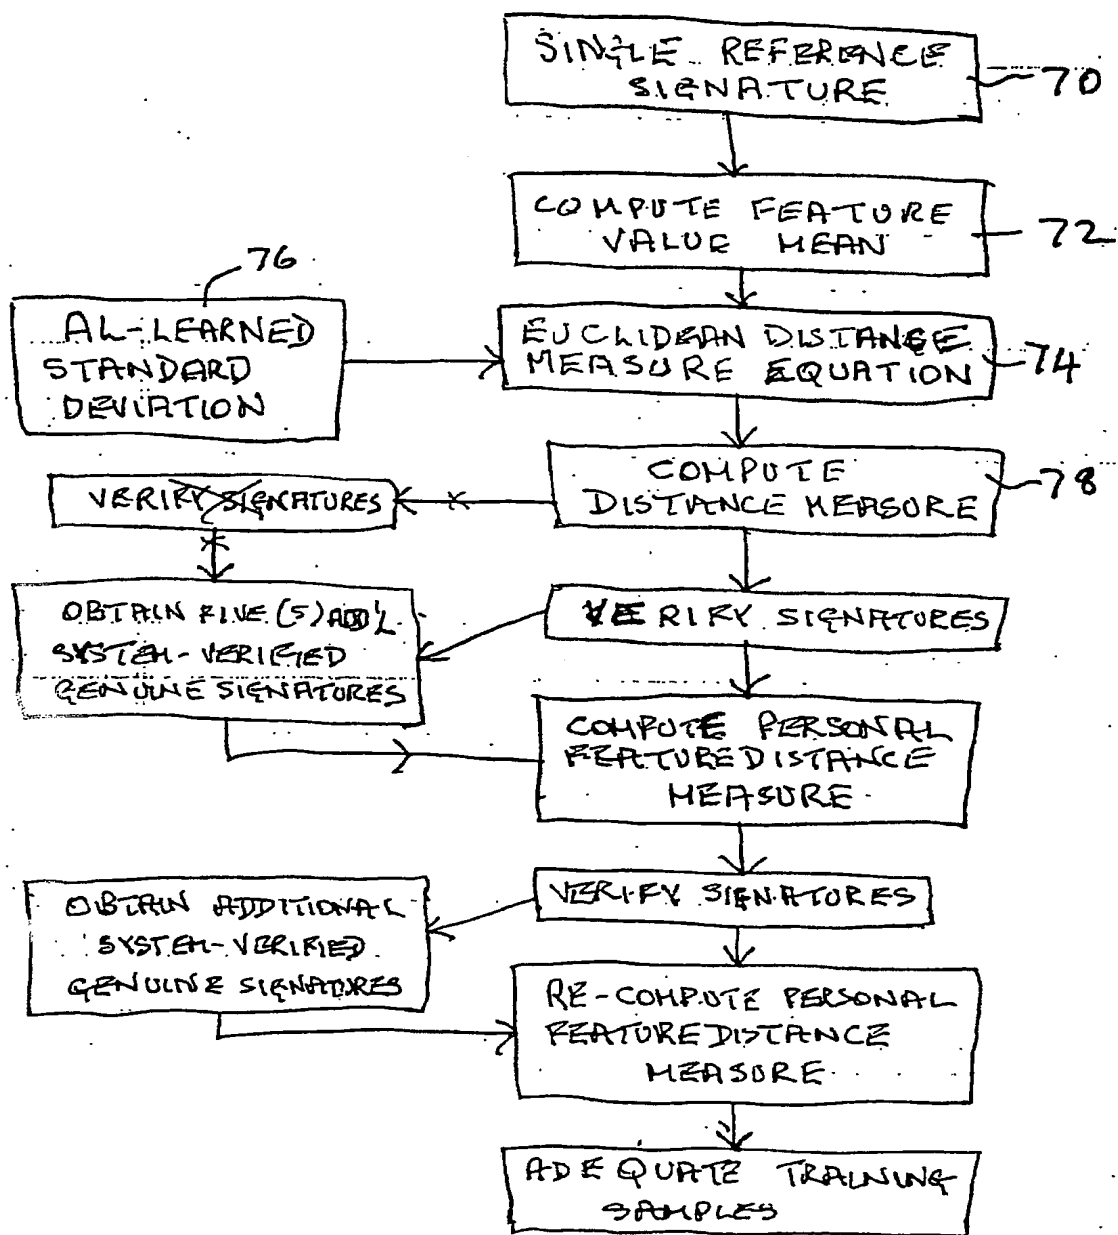 SINGLE REFERENCE
SIGNATURE
70
COMPUTE FEATURE
VALUE MEAN
72
76
AL-LEARNED
STANDARD
DEVIATION
EUCLIDEAN DISTANCE
MEASURE EQUATION
74
COMPUTE
DISTANCE MEASURE
78
VERIFY SIGNATURES
OBTAIN FIVE (5) ADD'L
SYSTEM-VERIFIED
GENUINE SIGNATURES
VERIFY SIGNATURES
COMPUTE PERSONAL
FEATURE DISTANCE
MEASURE
OBTAIN ADDITIONAL
SYSTEM-VERIFIED
GENUINE SIGNATURES
VERIFY SIGNATURES
RE-COMPUTE PERSONAL
FEATURE DISTANCE
MEASURE
ADEQUATE TRAINING
SAMPLES